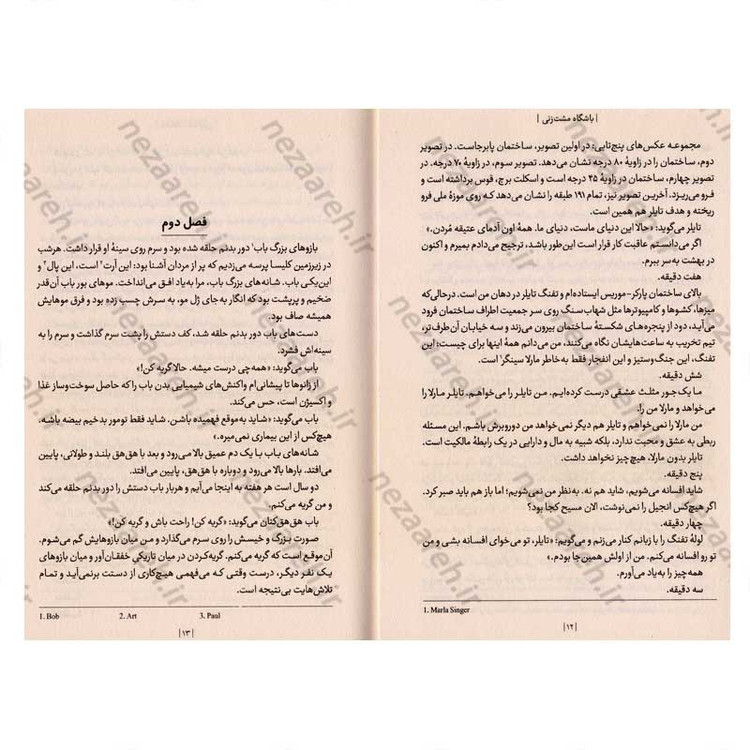 | باشگاه مشت‌زنی |
مجموعه عکس‌های پنج‌تایی: در اولین تصویر، ساختمان پابرجاست. در تصویر
دوم، ساختمان را در زاویهٔ ۸۰ درجه نشان می‌دهد. تصویر سوم، در زاویهٔ ۷۰ درجه. در
تصویر چهارم، ساختمان در زاویهٔ ۴۵ درجه است و اسکلت برج، قوس برداشته است و
فرو می‌ریزد. آخرین تصویر نیز، تمام ۱۹۱ طبقه را نشان می‌دهد که روی موزهٔ ملی فرو
ریخته و هدف تایلر هم همین است.
تایلر می‌گوید: «حالا این دنیای ماست، دنیای ما. همهٔ اون آدمای عتیقه مُردن.»
اگر می‌دانستم عاقبت کار قرار است این‌طور باشد، ترجیح می‌دادم بمیرم و اکنون
در بهشت به سر ببرم.
هفت دقیقه.
بالای ساختمان پارکر-موریس ایستاده‌ام و تفنگ تایلر در دهان من است. درحالی‌که
میزها، کشوها و کامپیوترها مثل شهاب‌سنگ روی سر جمعیت اطراف ساختمان فرود
می‌آید، دود از پنجره‌های شکستهٔ ساختمان بیرون می‌زند و سه خیابان آن‌طرف‌تر،
تیم تخریب به ساعت‌هایشان نگاه می‌کنند، من می‌دانم همهٔ اینها برای چیست: این
تفنگ، این جنگ‌وستیز و این انفجار فقط به‌خاطر مارلا سینگر¹ است.
شش دقیقه.
ما یک‌جور مثلث عشقی درست کرده‌ایم. من تایلر را می‌خواهم، تایلر مارلا را
می‌خواهد و مارلا من را.
من مارلا را نمی‌خواهم و تایلر هم دیگر نمی‌خواهد من دوروبرش باشم. این مسئله
ربطی به عشق و محبت ندارد، بلکه شبیه به مال و دارایی در یک رابطهٔ مالکیت است.
تایلر بدون مارلا، هیچ‌چیز نخواهد داشت.
پنج دقیقه.
شاید افسانه می‌شویم، شاید هم نه. به‌نظر من نمی‌شویم؛ اما باز هم باید صبر کرد.
اگر هیچ‌کس انجیل را نمی‌نوشت، الان مسیح کجا بود؟
چهار دقیقه.
لولهٔ تفنگ را با زبانم کنار می‌زنم و می‌گویم: «تایلر، تو می‌خوای افسانه بشی و من
تو رو افسانه می‌کنم. من از اولش همین‌جا بودم.»
همه‌چیز را به‌یاد می‌آورم.
سه دقیقه.
1. Marla Singer
|۱۲|
فصل دوم
بازوهای بزرگ باب¹ دور بدنم حلقه شده بود و سرم روی سینهٔ او قرار داشت. هرشب
در زیرزمین کلیسا پرسه می‌زدیم که پر از مردان آشنا بود: این آرت² است، این پال³ و
این‌یکی باب. شانه‌های بزرگ باب، مرا به‌یاد افق می‌انداخت. موهای بور باب آن‌قدر
ضخیم و پرپشت بود که انگار به جای ژل مو، به سرش چسب زده بود و فرق موهایش
همیشه صاف بود.
دست‌های باب دور بدنم حلقه شد، کف دستش را پشت سرم گذاشت و سرم را به
سینه‌اش فشرد.
باب می‌گوید: «همه‌چی درست میشه. حالا گریه کن!»
از زانوها تا پیشانی‌ام واکنش‌های شیمیایی بدن باب را که حاصل سوخت‌وساز غذا
و اکسیژن است، حس می‌کند.
باب می‌گوید: «شاید به‌موقع فهمیده باشن. شاید فقط تومور بدخیم بیضه باشه.
هیچ‌کس از این بیماری نمی‌میره.»
شانه‌های باب با یک دم عمیق بالا می‌رود و بعد با هق‌هق بلند و طولانی، پایین
می‌افتد. بارها بالا می‌رود و دوباره با هق‌هق، پایین می‌افتد.
دو سال است هر هفته به اینجا می‌آیم و هربار باب دستش را دور بدنم حلقه می‌کند
و من گریه می‌کنم.
باب هق‌هق‌کنان می‌گوید: «گریه کن! راحت باش و گریه کن!»
صورت بزرگ و خیسش را روی سرم می‌گذارد و من میان بازوهایش گم می‌شوم.
آن‌موقع است که گریه می‌کنم. گریه‌کردن در میان تاریکی خفقان‌آور و میان بازوهای
یک نفر دیگر، درست وقتی که می‌فهمی هیچ‌کاری از دستت برنمی‌آید و تمام
تلاش‌هایت بی‌نتیجه است.
1. Bob 2. Art 3. Paul
|۱۳|
nezaareh.ir